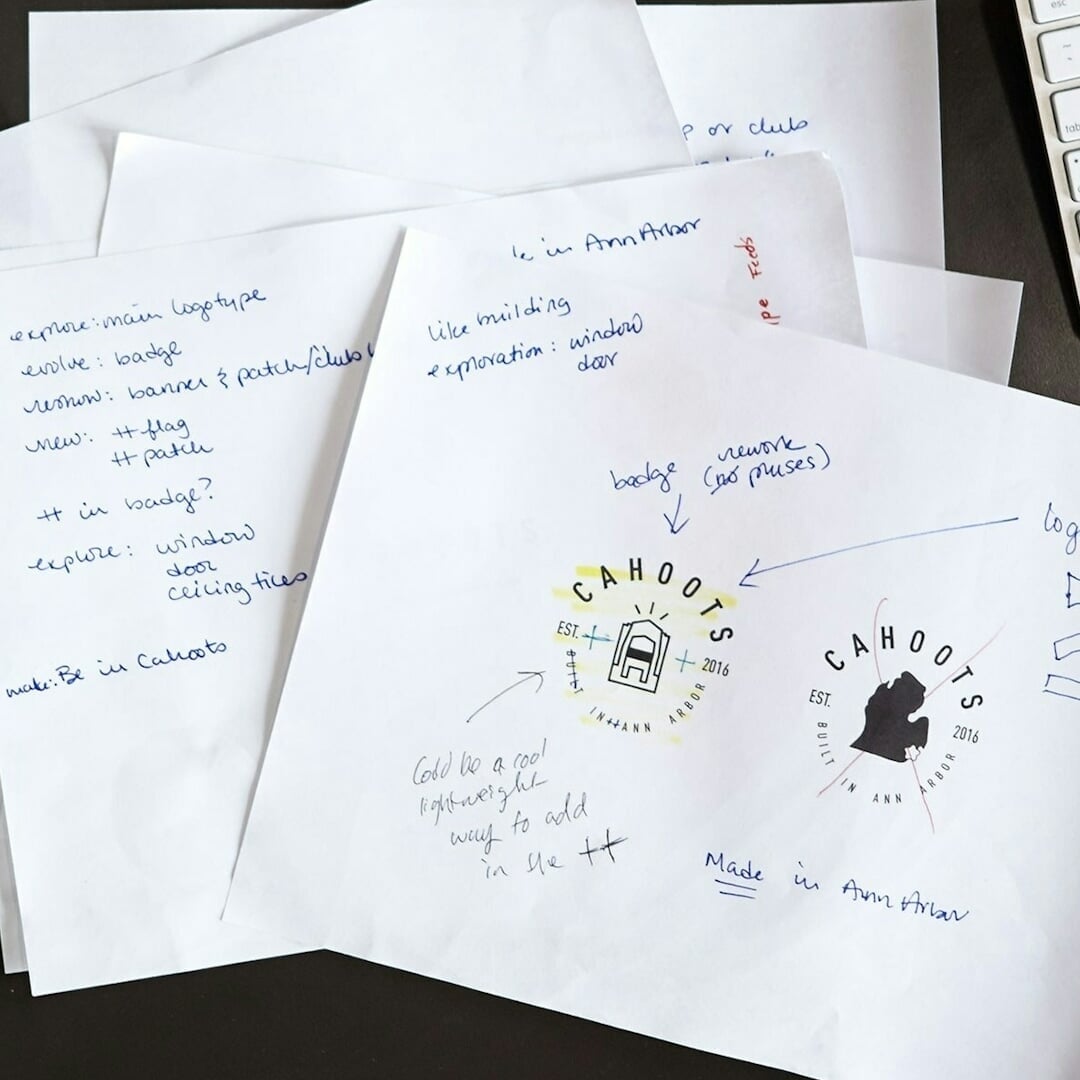 esc
tab
or club
in Ann Arbor
Feeds
explore: main logotype
evolve: badge
banner & patch/club
new: # flag
# patch
# in badge?
explore: window
door
ceiling tiles
make: Be in Cahoots
Like building
exploration: window
door
badge rework
(no pluses)
CAHOOTS
EST. 2016
BUILT IN ANN ARBOR
CAHOOTS
EST. 2016
BUILT IN ANN ARBOR
log
Could be a cool
lightweight
way to add
in the #
Made in Ann Arbor